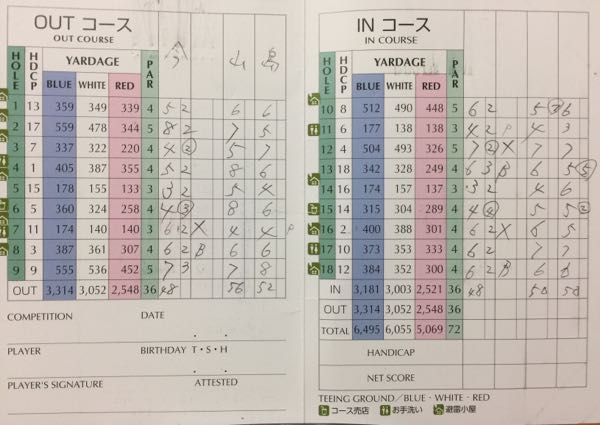 OUT コース
OUT COURSE
HOLE HDCP YARDAGE PAR 今 山 島
BLUE WHITE RED
1 13 359 349 339 4 5 2 6 6
2 17 559 478 344 5 8 2 7 5
3 7 337 322 220 4 4 ② 5 7
4 1 405 387 355 4 5 2 8 6
5 15 178 155 133 3 3 2 5 4
6 5 360 324 258 4 4 ③ 8 6
7 11 174 140 140 3 6 2 X 4 4 P
8 3 387 361 307 4 6 2 B 6 6
9 9 555 536 452 5 7 3 7 8
OUT 3,314 3,052 2,548 36 48 56 52
COMPETITION DATE
PLAYER BIRTHDAY T・S・H
PLAYER'S SIGNATURE ATTESTED
IN コース
IN COURSE
HOLE HDCP YARDAGE PAR
BLUE WHITE RED
10 8 512 490 448 5 6 2 5 6
11 6 177 138 138 3 4 2 P 4 3
12 4 504 493 326 5 7 ② X 7 7
13 18 342 328 249 4 6 3 B 6 5 ⑤
14 14 174 157 137 3 3 2 4 6
15 10 315 304 289 4 4 5 5 ②
16 2 400 388 301 4 6 2 X 6 5
17 10 373 353 333 4 6 2 7 7
18 12 384 352 300 4 6 2 B 6 6
IN 3,181 3,003 2,521 36 48 50 50
OUT 3,314 3,052 2,548 36
TOTAL 6,495 6,055 5,069 72
HANDICAP
NET SCORE
TEEING GROUND／BLUE・WHITE・RED
コース売店 お手洗い 避雷小屋